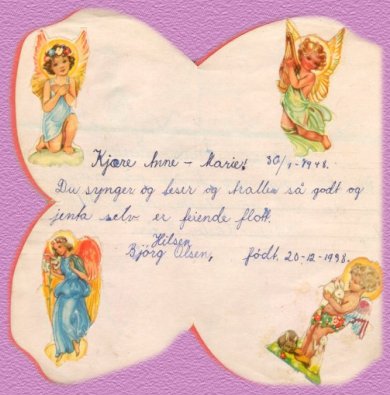 Kjære Anne - Marie! 30/1-1948.
Du synger og leser og traller så godt og
jenta selv er feiende flott.
Hilsen
Bjørg Olsen, født. 20-12-1938.